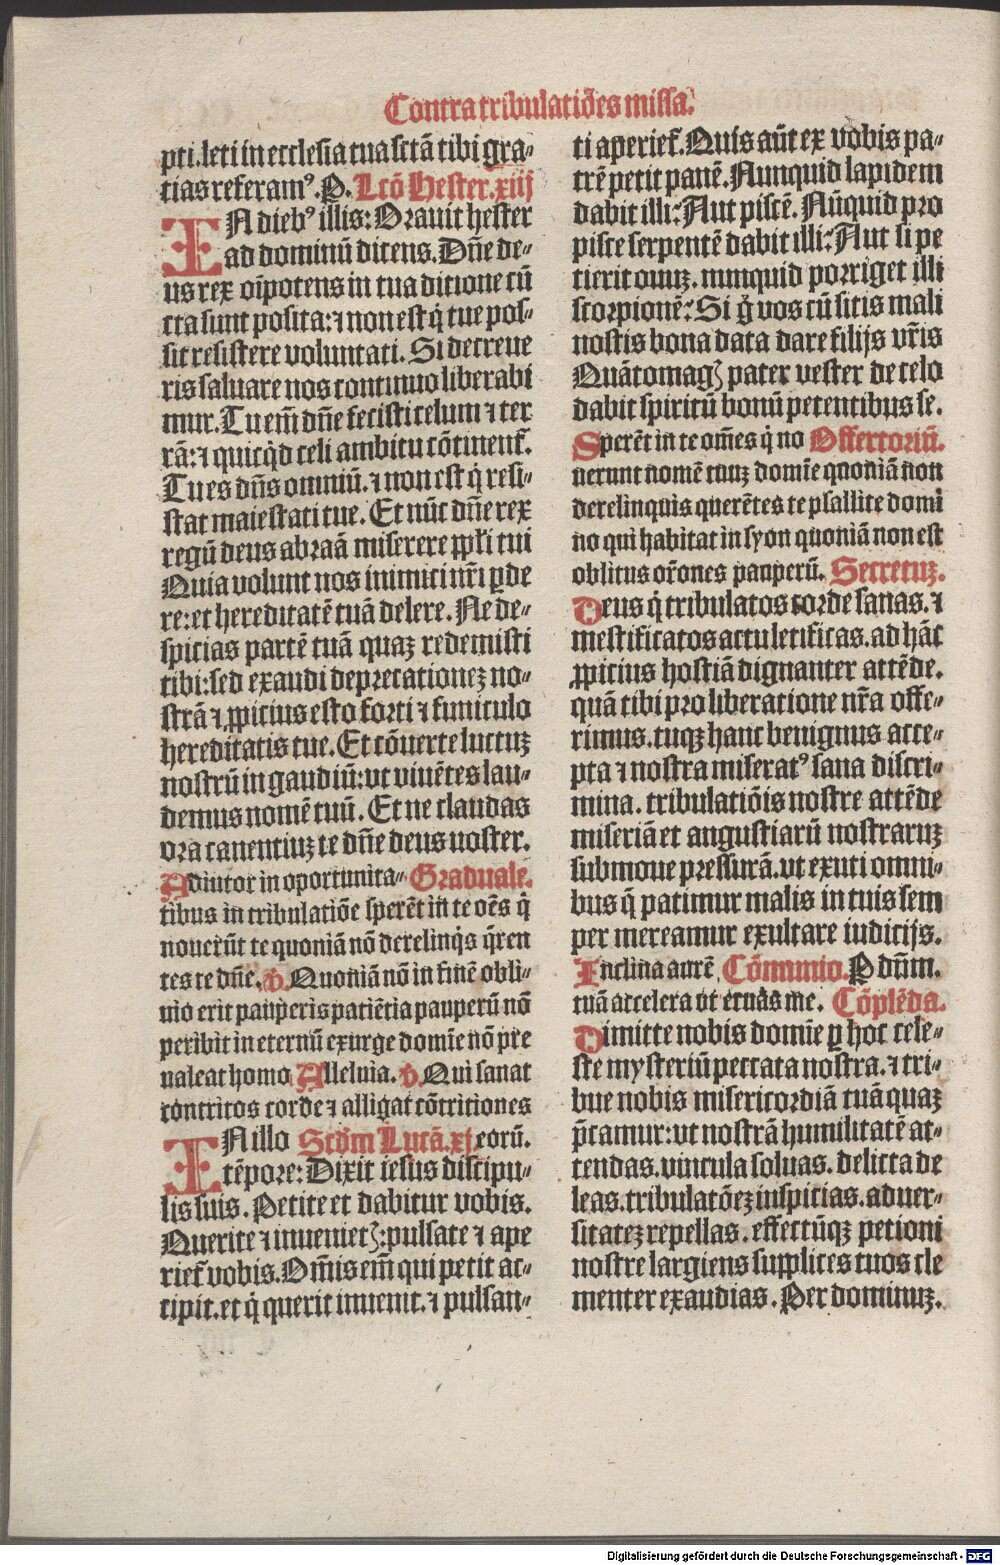 Contra tribulatiões missa.
pti. leti in ecclesia tua sctã tibi gra-
tias referamꝰ. P. Lcõ Hester. xiij
IN diebꝰ illis: Orauit hester
ad dominũ dicens. Dñe de-
us rex oĩpotens in tua ditione cũ
cta sunt posita: ⁊ non est q̇ tue pos-
sit resistere voluntati. Si decreue
ris saluare nos continuo liberabi
mur. Tu em̃ dñe fecisti celum ⁊ ter
rã: ⁊ quicq̇d celi ambitu cõtinent᷑.
Tu es dñs omniũ. ⁊ non est q̇ resi-
stat maiestati tue. Et nũc dñe rex
regũ deus abraã miserere ꝓpl̃i tui
Quia volunt nos inimici nr̃i ꝑde
re: et hereditatẽ tuã delere. Ne de-
spicias partẽ tuã quaꝫ redemisti
tibi: sed exaudi deprecationeꝫ no-
strã ⁊ ꝓpicius esto forti ⁊ funiculo
hereditatis tue. Et cõuerte luctuꝫ
nostrũ in gaudiũ: vt viuẽtes lau-
demus nomẽ tuũ. Et ne claudas
ora canentiuꝫ te dñe deus noster.
Adiutor in oportunita- Graduale.
tibus in tribulatiõe sperẽt in te oẽs q̇
nouerũt te quoniã nõ derelinq̇s q̃ren
tes te dñe. v. Quoniã nõ in finẽ obli-
uio erit pauperis patiẽtia pauperũ nõ
peribit in eternũ exurge domĩe nõ pre
ualeat homo Alleluia. v. Qui sanat
contritos corde ⁊ alligat cõtritiones
IN illo Scdm̃ Lucã. xj. eorũ.
tẽpore: Dixit iesus discipu-
lis suis. Petite et dabitur vobis.
Querite ⁊ inuenietꝭ: pulsate ⁊ ape
riet᷑ vobis. Om̃is em̃ qui petit ac-
cipit. et q̇ querit inuenit. ⁊ pulsan-
ti aperiet᷑. Quis aũt ex vobis pa-
trẽ petit panẽ. Nunquid lapidem
dabit illi? Aut piscẽ. Nũquid pro
pisce serpentẽ dabit illi? Aut si pe
tierit ouuꝫ. nunquid porriget illi
scorpionẽ? Si g̊ vos cũ sitis mali
nostis bona data dare filijs vr̃is
Quãtomagꝭ pater vester de celo
dabit spiritũ bonũ petentibus se.
Sperẽt in te om̃es q̇ no Offertoriũ.
uerunt nomẽ tuuꝫ domĩe quoniã non
derelinquis querẽtes te psallite domi
no qui habitat in syon quoniã non est
oblitus or̃ones pauperũ. Secretuꝫ.
Deus q̇ tribulatos corde sanas. ⁊
mestificatos actu letificas. ad hãc
ꝓpicius hostiã dignanter attẽde.
quã tibi pro liberatione nr̃a offe-
rimus. tuqꝫ hanc benignus acce-
pta ⁊ nostra miseratꝰ sana discri-
mina. tribulatiõis nostre attẽde
miseriã et angustiarũ nostraruꝫ
submoue pressurã. vt exuti omni-
bus q̃ patimur malis in tuis sem
per mereamur exultare iudicijs.
Inclina aurẽ Cõmunio. P dñm.
tuã accelera vt eruas me. Cõplẽda.
Dimitte nobis domĩe ꝑ hoc cele-
ste mysteriũ peccata nostra. ⁊ tri-
bue nobis misericordiã tuã quaꝫ
p̃camur: vt nostrã humilitatẽ at-
tendas. vincula soluas. delicta de
leas. tribulatõeꝫ inspicias. aduer-
sitateꝫ repellas. effectũqꝫ petioni
nostre largiens supplices tuos cle
menter exaudias. Per dominuꝫ.
Digitalisierung gefördert durch die Deutsche Forschungsgemeinschaft - DFG